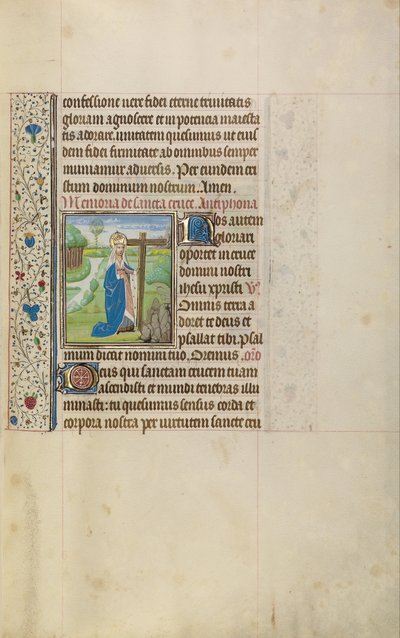 confessione uere fidei eterne trinitatis
gloriam agnoscere et in potencia maiesta
tis adorare. unitatem quesumus ut eius
dem fidei firmitate ab omnibus semper
muniamur aduersis. Per eundem cri
stum dominum nostrum. Amen.
Memoria de sancta cruce. Antiphona
Nos autem
gloriari
oportet in cruce
domini nostri
ihesu xpristi V
Omnis terra a
doret te deus et
psallat tibi. psal
mum dicat nomini tuo. Oremus. oro
Deus qui sanctam crucem tuam
ascendisti et mundi tenebras illu
minasti: tu quesumus sensus corda et
corpora nostra per uirtutem sancte cru